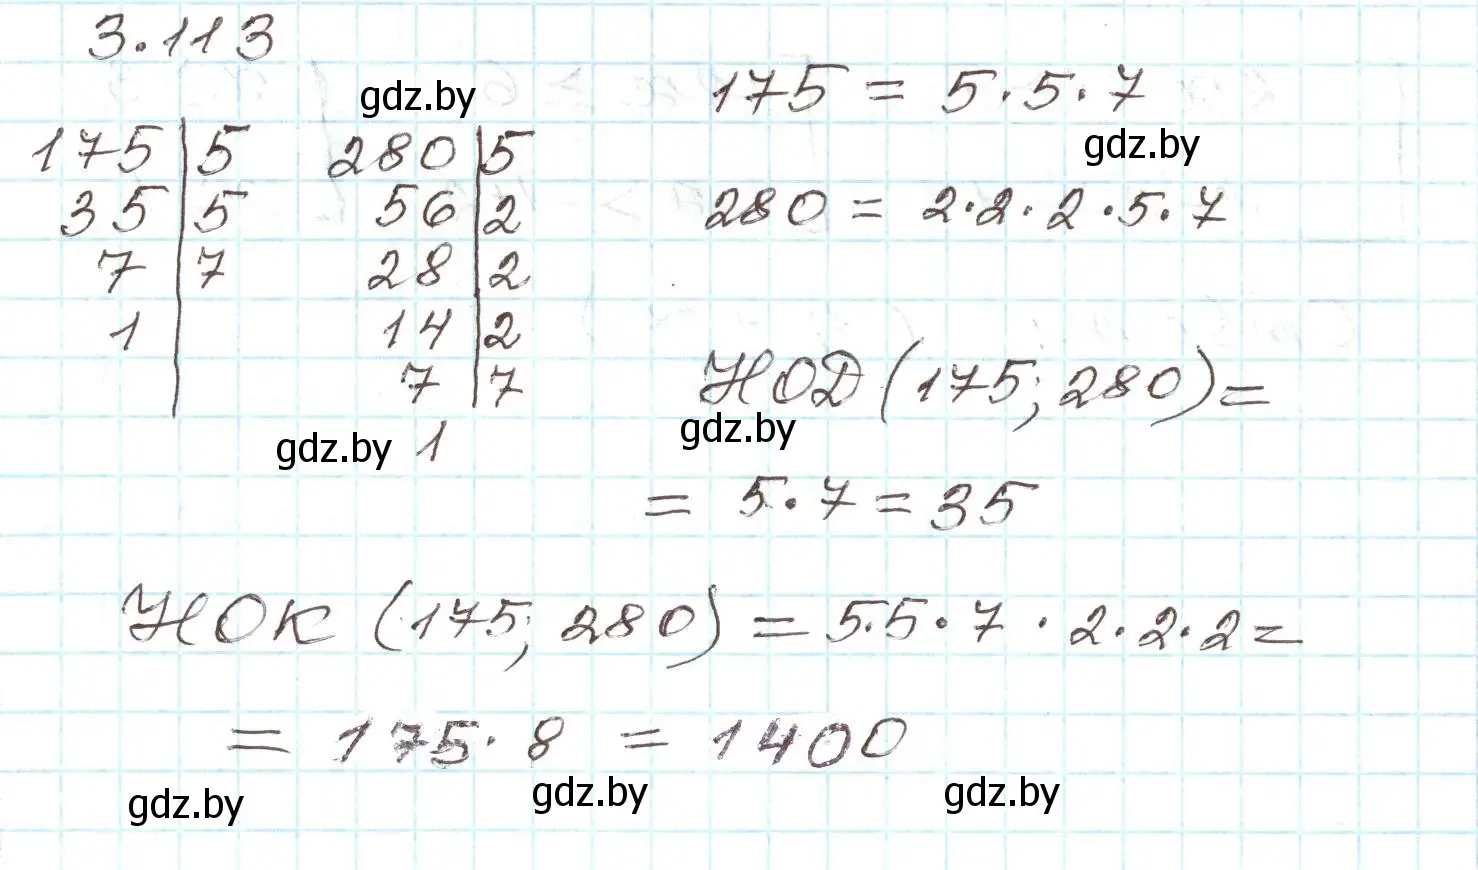 3.113
gdz.by
175 | 5
35 | 5
7 | 7
1
280 | 5
56 | 2
28 | 2
14 | 2
7 | 7
gdz.by 1
175 = 5·5·7
gdz.by
280 = 2·2·2·5·7
НОД (175; 280) =
gdz.by
= 5·7 = 35
НОК (175; 280) = 5·5·7·2·2·2 =
= 175·8 = 1400
gdz.by gdz.by gdz.by